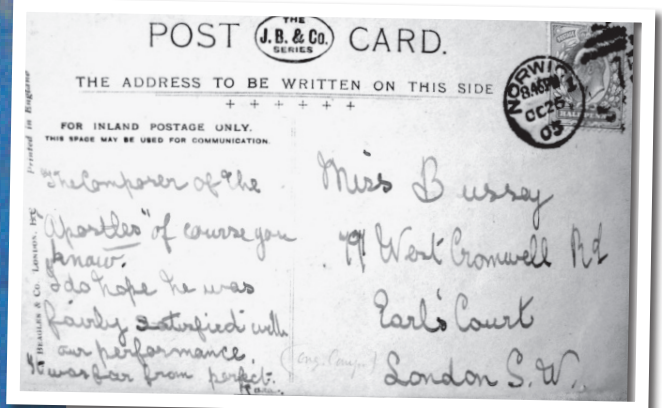 POST THE J.B. & Co. SERIES CARD.
THE ADDRESS TO BE WRITTEN ON THIS SIDE
NORWICH
8.45PM
OC 26
05
HALFPENNY
FOR INLAND POSTAGE ONLY.
THIS SPACE MAY BE USED FOR COMMUNICATION.
Printed in England
BEAGLES & Co. LONDON, E.C.
"The Composer of the
Apostles" of course you
know.
I do hope he was
fairly satisfied with
our performance.
It was far from perfect.
Miss Bussey
79 West Cromwell Rd
Earl's Court
London S.W.